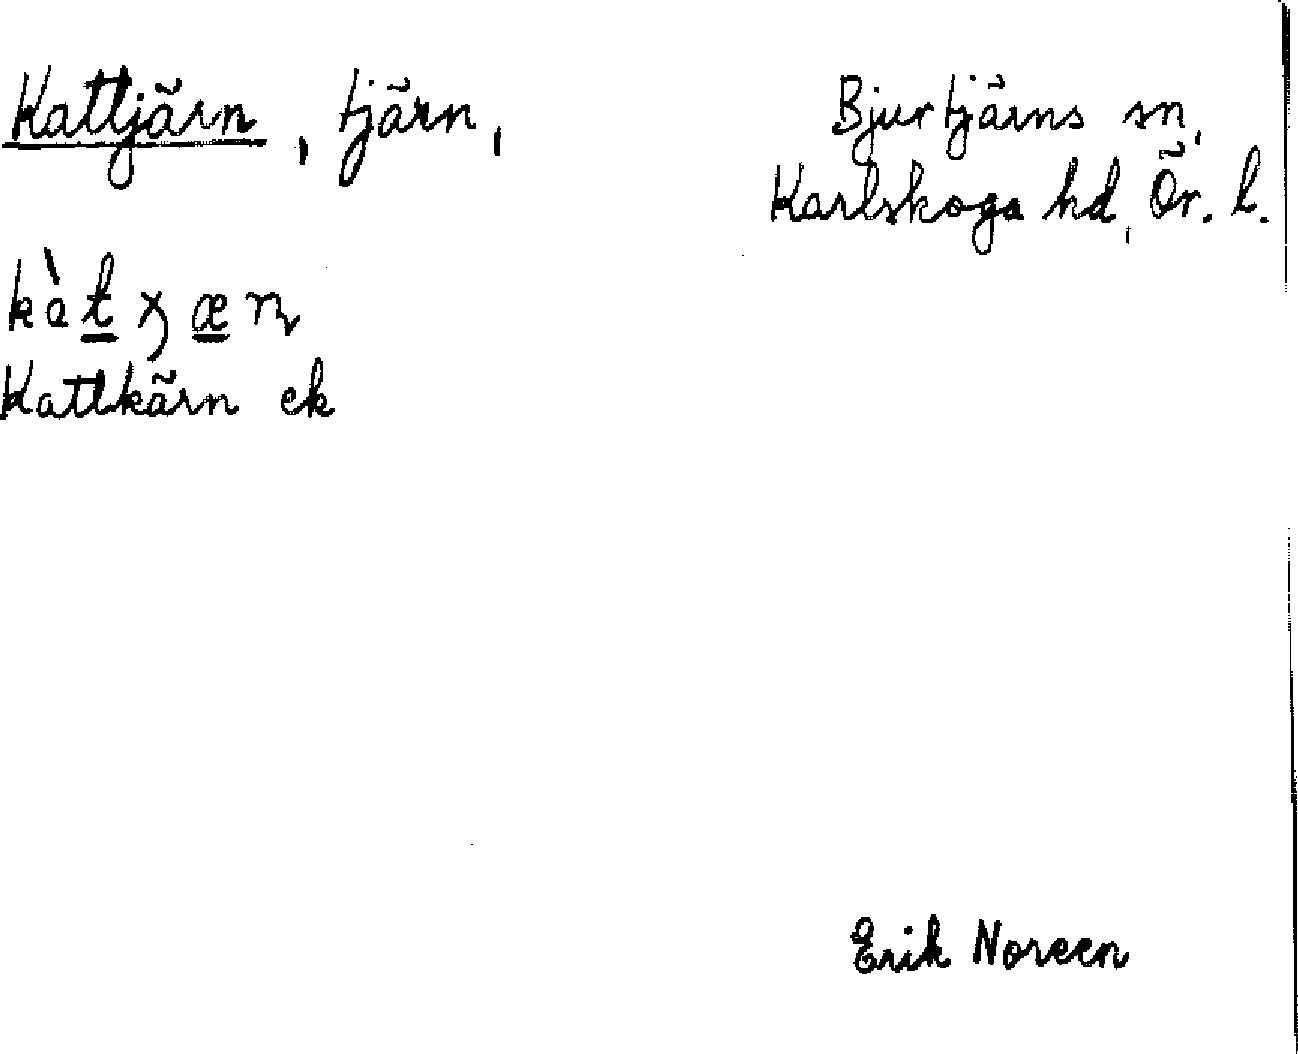 Kattjärn, tjärn,
Bjurtjärns sn,
Karlskoga hd, Ör. l.
kàtχæɳ
Kattkärn ek
Erik Noreen